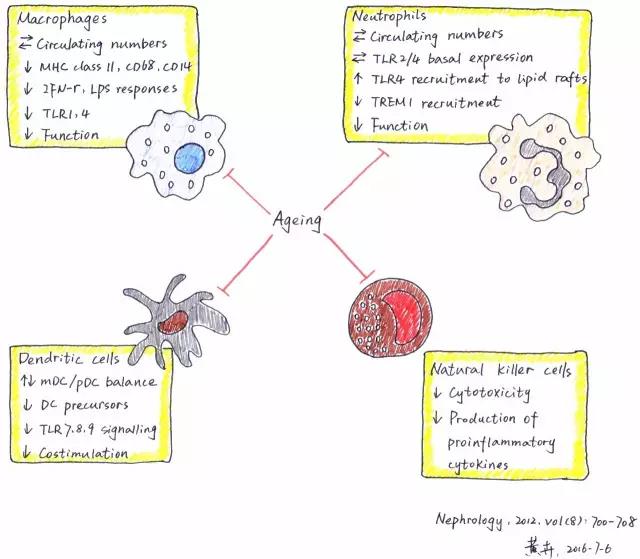 Macrophages
⇄ Circulating numbers
↓ MHC class II, CD68, CD14
↓ IFN-r, LPS responses
↓ TLR1,4
↓ Function
Neutrophils
⇄ Circulating numbers
⇄ TLR2/4 basal expression
↑ TLR4 recruitment to lipid rafts
↓ TREM1 recruitment
↓ Function
Ageing
Dendritic cells
↑↓ mDC/pDC balance
↓ DC precursors
↓ TLR7.8.9 signalling
↓ Costimulation
Natural killer cells
↓ Cytotoxicity
↓ Production of
proinflammatory
cytokines
Nephrology, 2012, vol(8): 700-708
黄卉, 2016-7-6